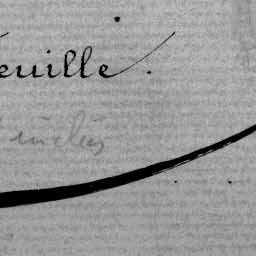 euille.
inclus